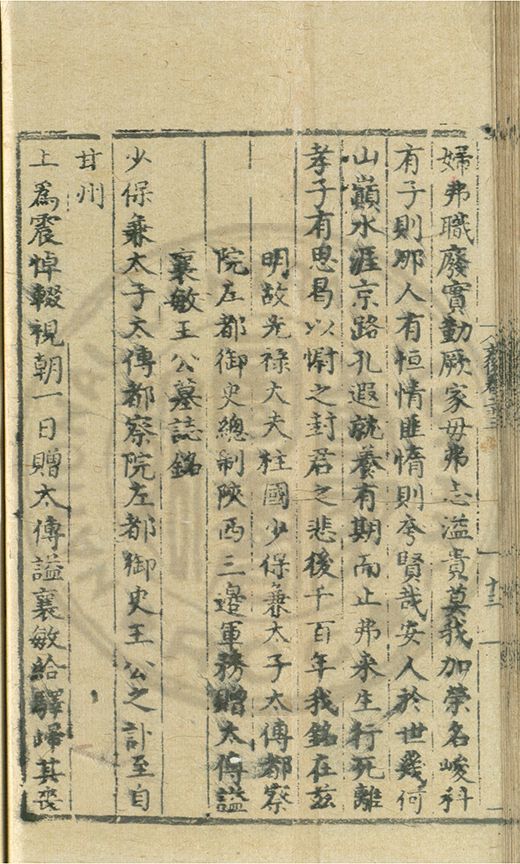 婦弗職廢實勤厥家毋弗志溢貴莫我加榮名峻科
有子則那人有恒情匪惰則夸賢哉安人於世幾何
山巔水涯京路孔遐就養有期而止弗来生行死離
孝子有思曷以慰之封君之悲後千百年我銘在玆
明故光禄大夫柱國少保兼太子太傅都察
院左都御史總制陝西三邉軍務贈太傅謚
襄敏王公墓誌銘
少保兼太子太傅都察院左都御史王公之訃至自
甘州
上爲震悼輟視朝一日贈太傅謚襄敏給驛歸其喪
十三